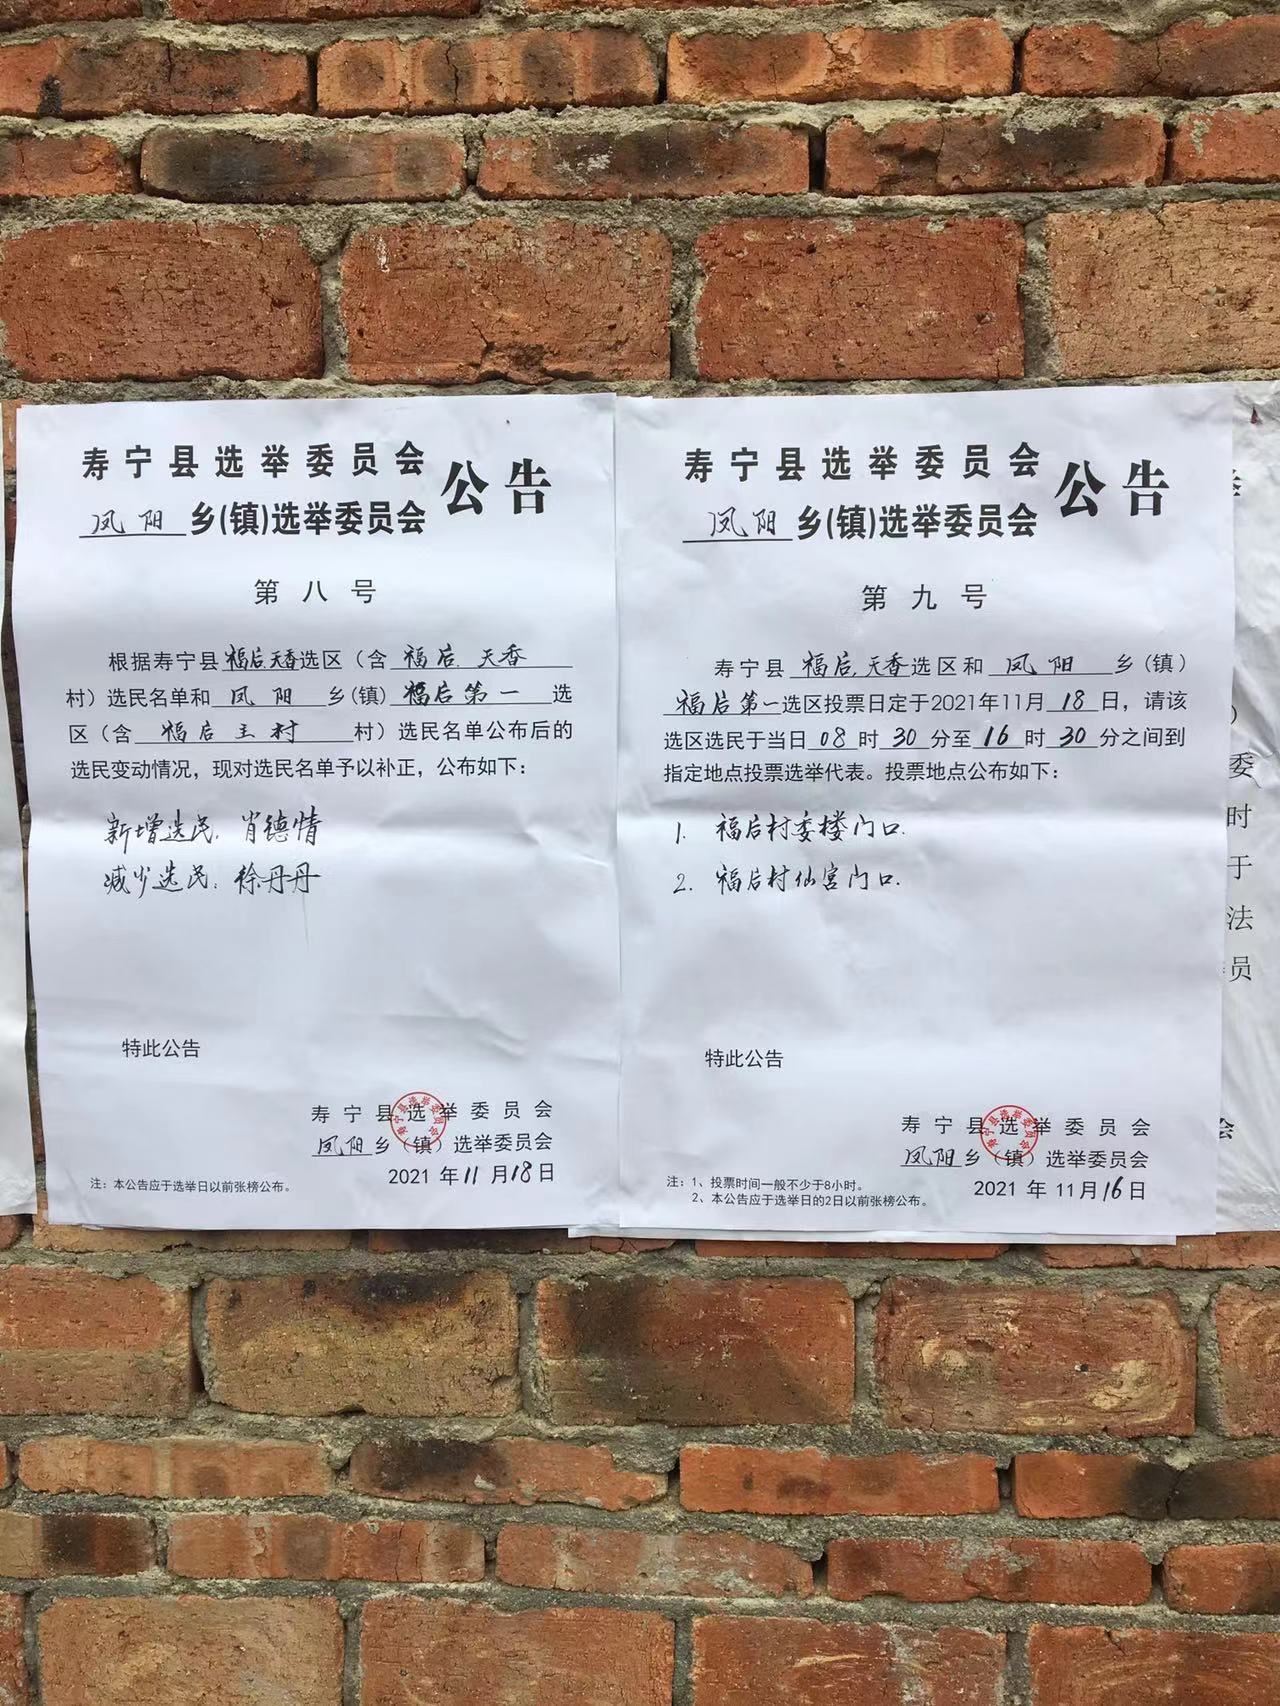 寿宁县选举委员会
凤阳乡(镇)选举委员会
公告
第八号
根据寿宁县福后,天香选区（含福后、天香
村）选民名单和凤阳乡(镇)福后第一选
区（含福后主村村）选民名单公布后的
选民变动情况，现对选民名单予以补正，公布如下：
新增选民：肖德情
减少选民：徐丹丹
特此公告
寿宁县选举委员会
凤阳乡（镇）选举委员会
2021年11月18日
注：本公告应于选举日以前张榜公布。
寿宁县选举委员会
寿宁县选举委员会
凤阳乡(镇)选举委员会
公告
第九号
寿宁县福后,天香选区和凤阳乡(镇)
福后第一选区投票日定于2021年11月18日，请该
选区选民于当日08时30分至16时30分之间到
指定地点投票选举代表。投票地点公布如下：
1. 福后村委楼门口.
2. 福后村仙宫门口.
特此公告
寿宁县选举委员会
凤阳乡（镇）选举委员会
2021年11月16日
注：1、投票时间一般不少于8小时。
2、本公告应于选举日的2日以前张榜公布。
寿宁县选举委员会
）
委
时
于
法
员
会